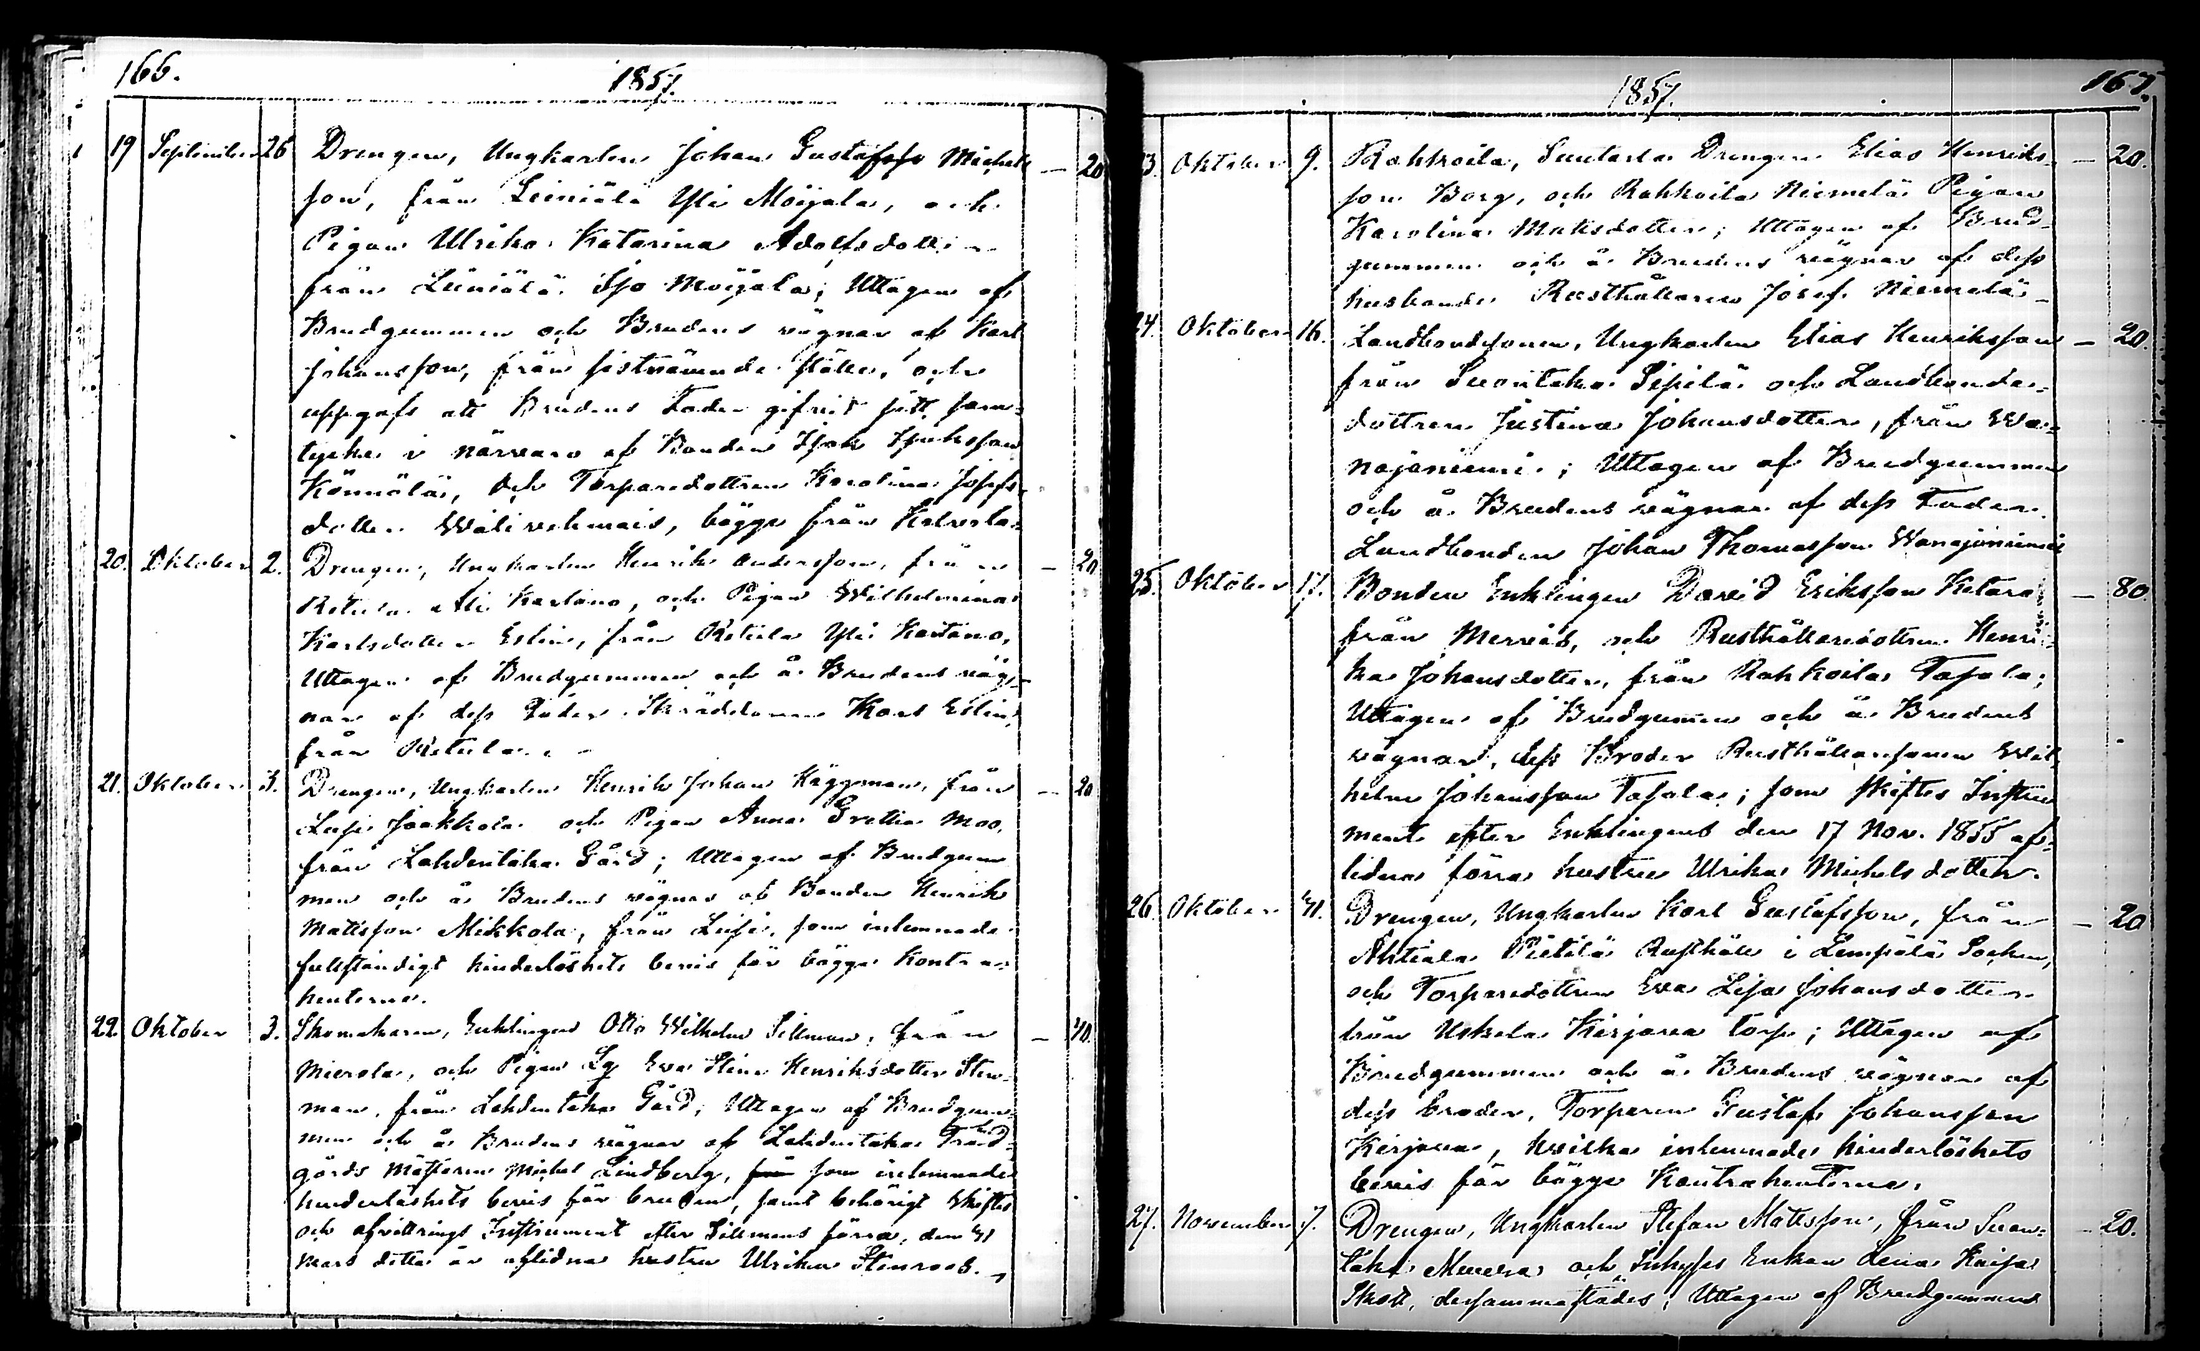 166.
1857.
19 September 26 Drengen, Ungkarlen Johan Gustafsson Michels- — 20
son, från Leiniälä Yli Moijala, och
Pigan Ulrika Katarina Adolfsdotter
från Leiniälä Iso Moijala; Uttagen af
Brudgummen och Brudens vägnar af Karl
Johansson, från sistnämnde ställe, och
uppgafs att Brudens Fader gifvit sitt sam-
tycke i närvaro af Bonden Isak Isaksson
Könnölä, och Torparedottren Karolina Josefs-
dotter Wälivehmais, bägge från Katvala.
20. Oktober 2. Drengen, Ungkarlen Henrik Andersson, från — 20
Retula Ali Kartano, och Pigan Wilhelmina
Karlsdotter Eslin, från Retula Yli Kartano,
Uttagen af Brudgummen och å Brudens väg-
nar af dess Fader Skräddaren Karl Eslin,
från Retula.
21. Oktober 3. Drengen, Ungkarlen Henrik Johan Häggman, från — 20
Luse Jaakkola och Pigan Anna Gretha Moo,
från Lahdentaka Gård; Uttagen af Brudgum-
men och å Brudens vägnar af Bonden Henrik
Mattsson Mikkola, från Lusi, som inlemnade
fullständigt hinderlöshets bevis för bägge Kontra-
henterne.
22. Oktober 3. Skomakaren, Enklingen Otto Wilhelm Sillman, från — 40.
Mierola, och Pigan Eva Stina Henriksdotter Sten-
man, från Lahdentaka Gård; Uttagen af Brudgum-
men och å Brudens vägnar af Lahdentaka Träd-
gårds Mästaren Michel Lindberg, som inlemnade
hinderlöshets bevis för bruden, samt behörigt Skiftes
och afvittrings Instrument efter Sillmans förra, den 41
mars detta år aflidna hustru Ulrika Stenroos.
167.
1857.
23. Oktober 9. Rahkoila, Suontaka Drengen Elias Henriks- — 20.
son Borg, och Rahkoila Niemelä Pigan
Karolina Matsdotter; Uttagen af Brud-
gummen och å Brudens vägnar af dess
husbonde Rusthållaren Josef Niemelä
24. Oktober 16. Landbondesonen, Ungkarlen Elias Henriksson — 20.
från Suontaka Sipilä och Landbonde-
dottren Justina Johansdotter, från Wa-
najaniemi; Uttagen af Brudgummen
och å Brudens vägnar af dess Fader
Landbonden Johan Thomasson Wanajaniemi
25. Oktober 17. Bonden Enklingen David Eriksson Ketara — 80.
från Mervis, och Rusthållaredottren Henri-
ka Johansdotter, från Rahkoila Tapola;
Uttagen af Brudgummen och å Brudens
vägnar, dess Broder Rusthållaresonen Wil-
helm Johansson Tapola; som Skiftes Instru-
ment efter Enklingens den 17 Nov. 1855 af-
lidna förra hustru Ulrika Michelsdotter.
26. Oktober 41. Drengen, Ungkarlen Karl Gustafsson, från — 20
Ahtiala Pietilä Rusthåll i Lempälä Socken,
och Torparedottren Eva Lisa Johansdotter
från Uskela Kirjava torp; Uttagen af
Brudgummen och å Brudens vägnar af
dess broder, Torparen Gustaf Johansson
Kirjava, hvilka inlemnade hinderlöshets
bevis för bägge Kontrahenterne.
27. November 7. Drengen, Ungkarlen Stefan Matsson, från Suon- — 20.
taka och Inhyses Enkan Lena Kaisa
Skott, dersammastädes; Uttagen af Brudgummen